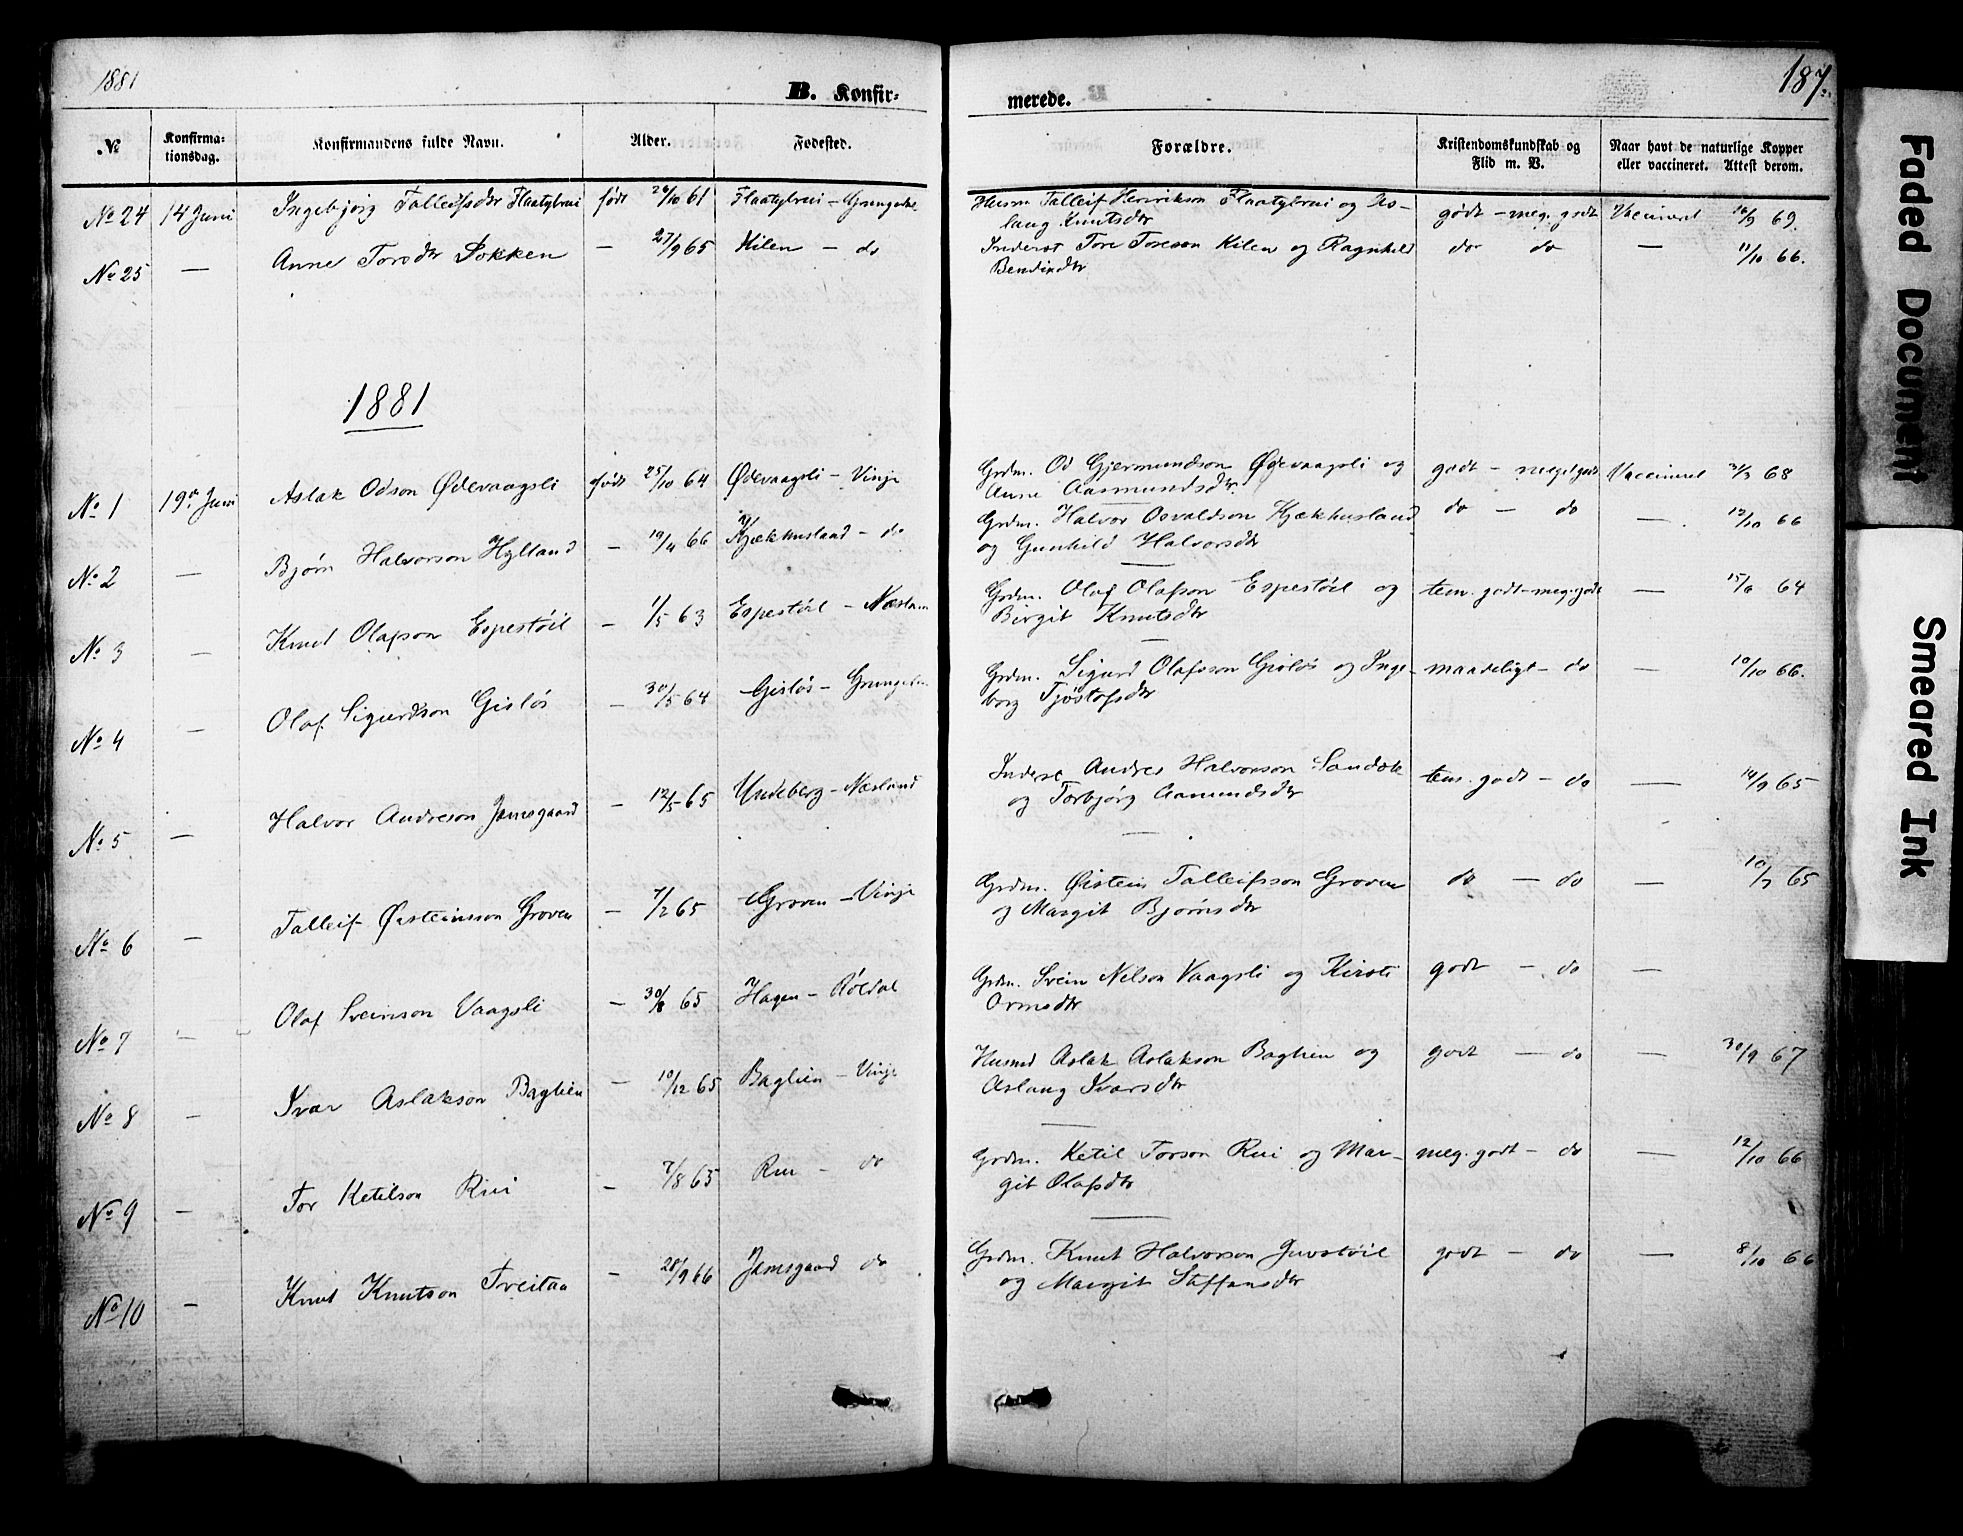 1881
B. Konfir-
merede.
187.
№
Konfirma-
tionsdag.
Konfirmandens fulde Navn.
Alder.
Fødested.
Forældre.
Kristendomskundskab og
Flid m. V.
Naar havt de naturlige Kopper
eller vaccineret. Attest derom.
No 24 14 Juni Ingebjørg Talleifsdtr Flaatybrui født 26/10 61 Flaatybrui – Husm Talleif Henrikson Flaatybrui og As-
laug Knutsdtr godt – meg. godt Vaccineret 16/9 69.
No 25 — Anne Torsdtr Dokken — 27/9 65 Kilen – do Inderst Tore Toreson Kilen og Ragnhild
do do — 11/10 66.
1881
No 1 19de Juni Aslak Odson Ødevaagsli født 25/10 64 Ødevaagsli – Vinje Grdm. Od Gjermundson Ødevaagsli og
Anne Aasmundsdtr. godt – meget godt Vaccineret 68
No 2 — Bjørn Halvorson Hylland — 19/4 66 Kjækhusland – do Grdm. Halvor Osvaldson Kjækhusland
og Gunhild Halvorsdtr do – do — 12/10 66
No 3 — Knut Olafson Espestöil — 1/5 63 Espestöil – Grdm. Olaf Olafson Espestöil og
Birgit Knutsdtr tem. godt – meg. godt — 15/6 64
No 4 — Olaf Sigurdson Gislös — 30/5 64 Gislös – Grdm. Sigurd Olafsson Gislös og Inge-
borg Tjöstofsdtr maadeligt – do — 10/10 66.
No 5 — Halvor Andreson Jamsgaard — 12/5 65 Undeberg – Næsland Inderst Andres Halvorson
og Torbjörg Aamundsdtr tem. godt – do — 14/9 65
No 6 — Talleif Øisteinsson Groven — 7/2 65 Groven – Vinje Grdm. Øistein Talleifsson Groven
og Margit Bjørnsdtr do – do — 10/7 65
No 7 — Olaf Sveinson Vaagsli — 30/8 65 Hagen – Röldal Grdm. Svein Nilson Vaagsli og Kirsti
Ormsdtr godt – do —
No 8 — Ivar Aslakson Baglien — 10/12 65 Baglien – Vinje Husmd Aslak Aslakson Baglien og
Aslaug Ivarsdtr godt – do — 30/9 67
No 9 — Tor Ketilson Rui — 7/8 65 Rui – do Grdm. Ketil Torson Rui og Mar-
git Olafsdtr meg. godt – do — 12/10 66
No 10 — Knut Knutson Tveitaa — 28/9 66 Jamsgaard do Grdm. Knut Halvorson Juvstöil
og Margit Staffensdtr godt – do — 8/10 66
Faded Document
Smeared Ink